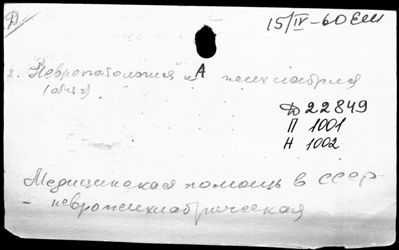 Д
15/IV-60 ЕШ
2. Невропатология и А психиатрия
(общ.)
Д 22849
П 1001
Н 1002
Медицинская помощь в СССР
- невропсихиатрическая